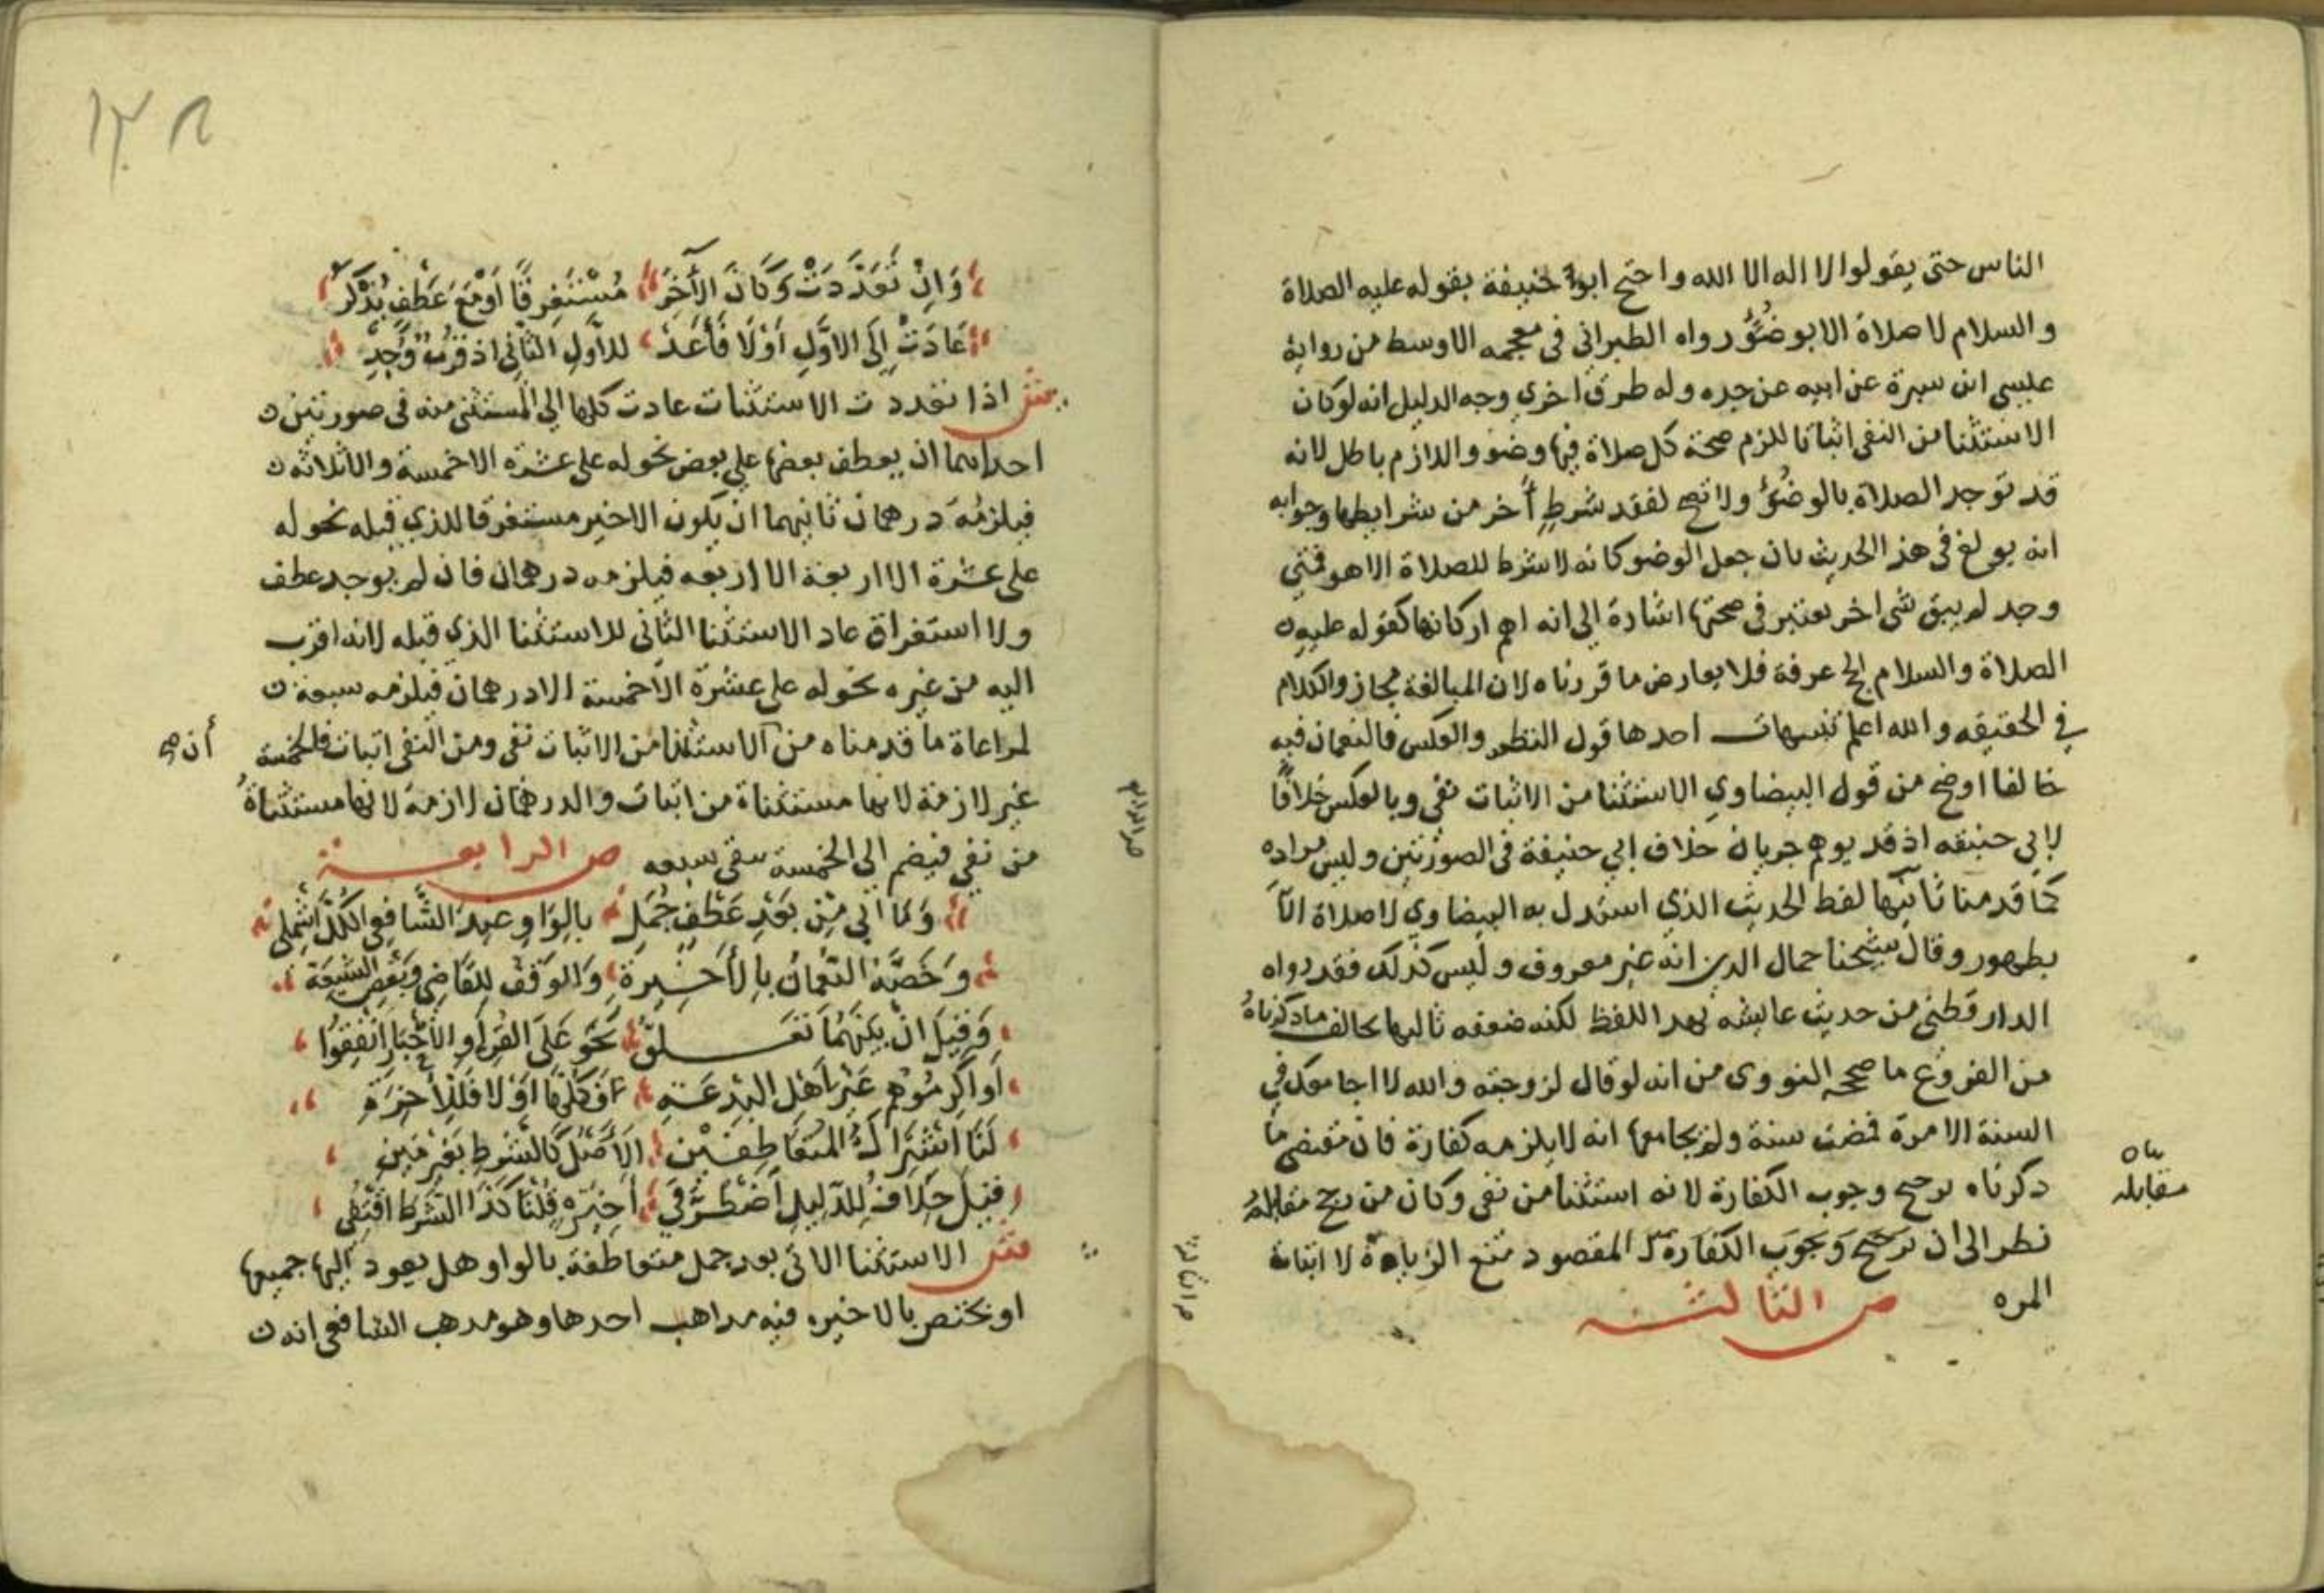 الناس حتى يقولوا لا اله الا الله واحتج ابو حنيفة بقوله عليه الصلاة
والسلام لا صلاة الا بوضوء رواه الطبراني في معجمه الاوسط من رواية
عيسى ابن سبرة عن ابيه عن جده وله طرق اخري وجه الدليل انه لو كان
الاستثنا من النفي اثباتا للزم صحة كل صلاة فيها وضوء واللازم باطل لانه
قد توجد الصلاة بالوضوء ولا تصح لفقد شرط آخر من شرايطها وجوابه
انه بولغ في هذا الحديث بان جعل الوضو كانه لا شرط للصلاة الا هو فمتي
وجد لم يبق شي اخر يعتبر في صحتها اشارة الي انه اهم اركانها كقوله عليه
الصلاة والسلام الحج عرفة فلا يعارض ما قررناه لان المبالغة مجاز والكلام
في الحقيقه والله اعلم تنبيهات احدها قول النظم والعكس فالنعمان فيه
خالفا اوضح من قول البيضاوي الاستثنا من الاثبات نفي وبالعكس خلافا
لابي حنيفه اذ قد يوهم جريان خلاف ابي حنيفة في الصورتين وليس مراده
كما قدمنا ثانيها لفظ الحديث الذي استدل به البيضاوي لا صلاة الا
بطهور وقال شيخنا جمال الدين انه غير معروف وليس كذلك فقد رواه
الدارقطني من حديث عايشه بهدا اللفظ لكنه ضعفه ثالثها يخالف ما ذكرناه
من الفروع ما صححه النووي من انه لو قال لزوجته والله لا اجامعك في
السنة الا مرة فمضت سنة ولم يجامعها انه لا يلزمه كفارة فان مقتضي ما
دكرناه ترجيح وجوب الكفارة لانه استثنا من نفي وكان من رجح مقابله
نظر الى ان المقصود منع الزيادة لا اثبات
المره ص الثالثة
مقابله
١٣٨
وَاِنْ تَعَدَّدَتْ وَكَانَ الآخِرُ مُسْتَغْرِقًا اَوْ مَعَ عَطْفٍ يُذْكَرُ
عَادَتْ اِلَى الاَوَّلِ اَوْ لَا فَأَعِدْ للاَوَّلِ الثَّانِي اذ قُرْبٌ وُجِدْ
ش اذا تعددت الاستثنات عادت كلها الي المستثني منه في صورتين
احداهما ان يعطف بعضها علي بعض نحو له على عشرة الا خمسة والا ثلاثة
فيلزمه درهمان ثانيهما ان يكون الاخير مستغرقا للذي قبله نحو له
على عشرة الا اربعة الا اربعه فيلزمه درهمان فان لم يوجد عطف
ولا استغراق عاد الاستثنا الثاني للاستثنا الذي قبله لانه اقرب
اليه من غيره نحو له على عشرة الا خمسة الا درهمان فيلزمه سبعة
لمراعاة ما قدمناه من الاستثنا من الاثبات نفي ومن النفي اثبات فالخمسة
أن صح
غير لازمة لانها مستثناة من اثبات والدرهمان لازمة لانها مستثناة
من نفي فيضم الي الخمسة بقي سبعه ص الرابعة
وَمَا اَتَي مِنْ بَعْدِ عَطْفِ جُمَلِ بالوَاوِ عِنْدَ الشَّافِعِي الكُلَّ اشْمِلِ
وَخَصَّهُ النُّعْمَانُ بِالأَخِيرَةِ وَالوَقْفُ لِلقَاضِي وَبَعْضِ الشِّيعَةِ
وَقِيلَ انْ بَيْنَهُمَا تَعَلُّقُ نَحْوُ عَلَى القُرَّاءِ وَالأَحْبَارِ انْفِقُوا
اَو اكْرِمُوهُم غَيْرَ اَهْلِ البِدْعَةِ فَكُلُّهَا اَوْ لَا فَلِلأَخِيرَةِ
لَنَا اشْتِرَاكُ المُتَعَاطِفَيْنِ الاَصْلُ كَالشَّرْطِ بِغَيْرِ مَيْنِ
قِيلَ خِلَافٌ لِلدَّلِيلِ اضْطُرَّ فِي أَخِيرَةٍ قُلْنَا كَذَا الشَّرْطُ اقْتُفِي
ش الاستثنا الاتي بعد جمل متعاطفة بالواو هل يعود اليها جميعها
او يختص بالاخيره فيه مداهب احدها وهو مدهب الشافعي انه